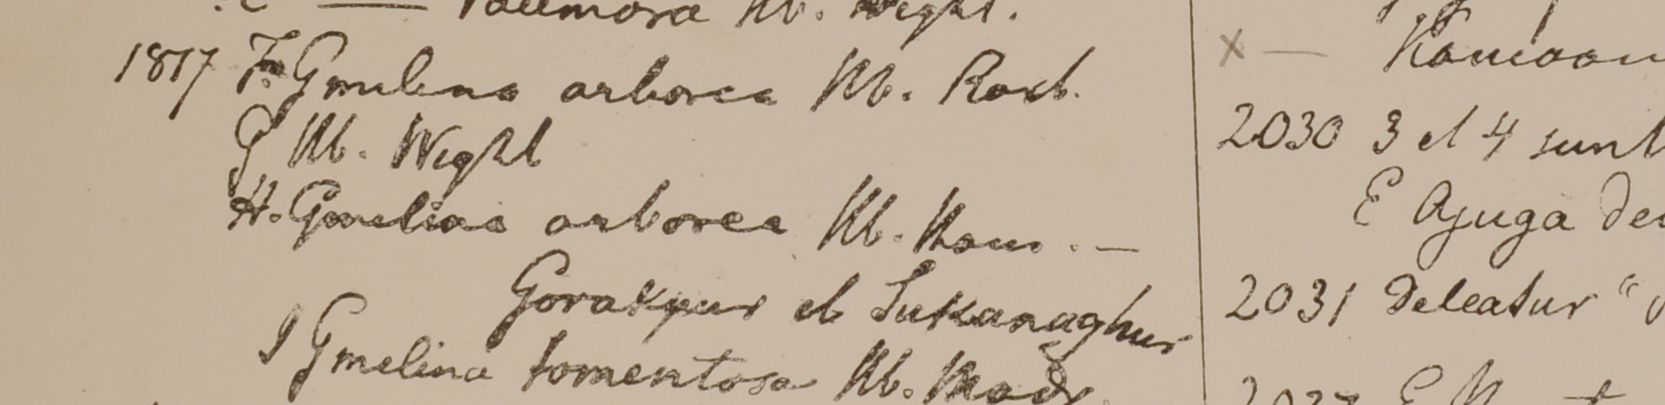 Hb. Wight.
1817 F. Gmelina arborea Hb. Roxb.
G Hb. Wight
H. Gmelina arborea Hb. Ham. —
Gorakpur et Sukanaghur
I Gmelina tomentosa Hb. Madr.
x — Kamaon
2030 3 et 4 sunt
E Ajuga
2031 Deleatur "